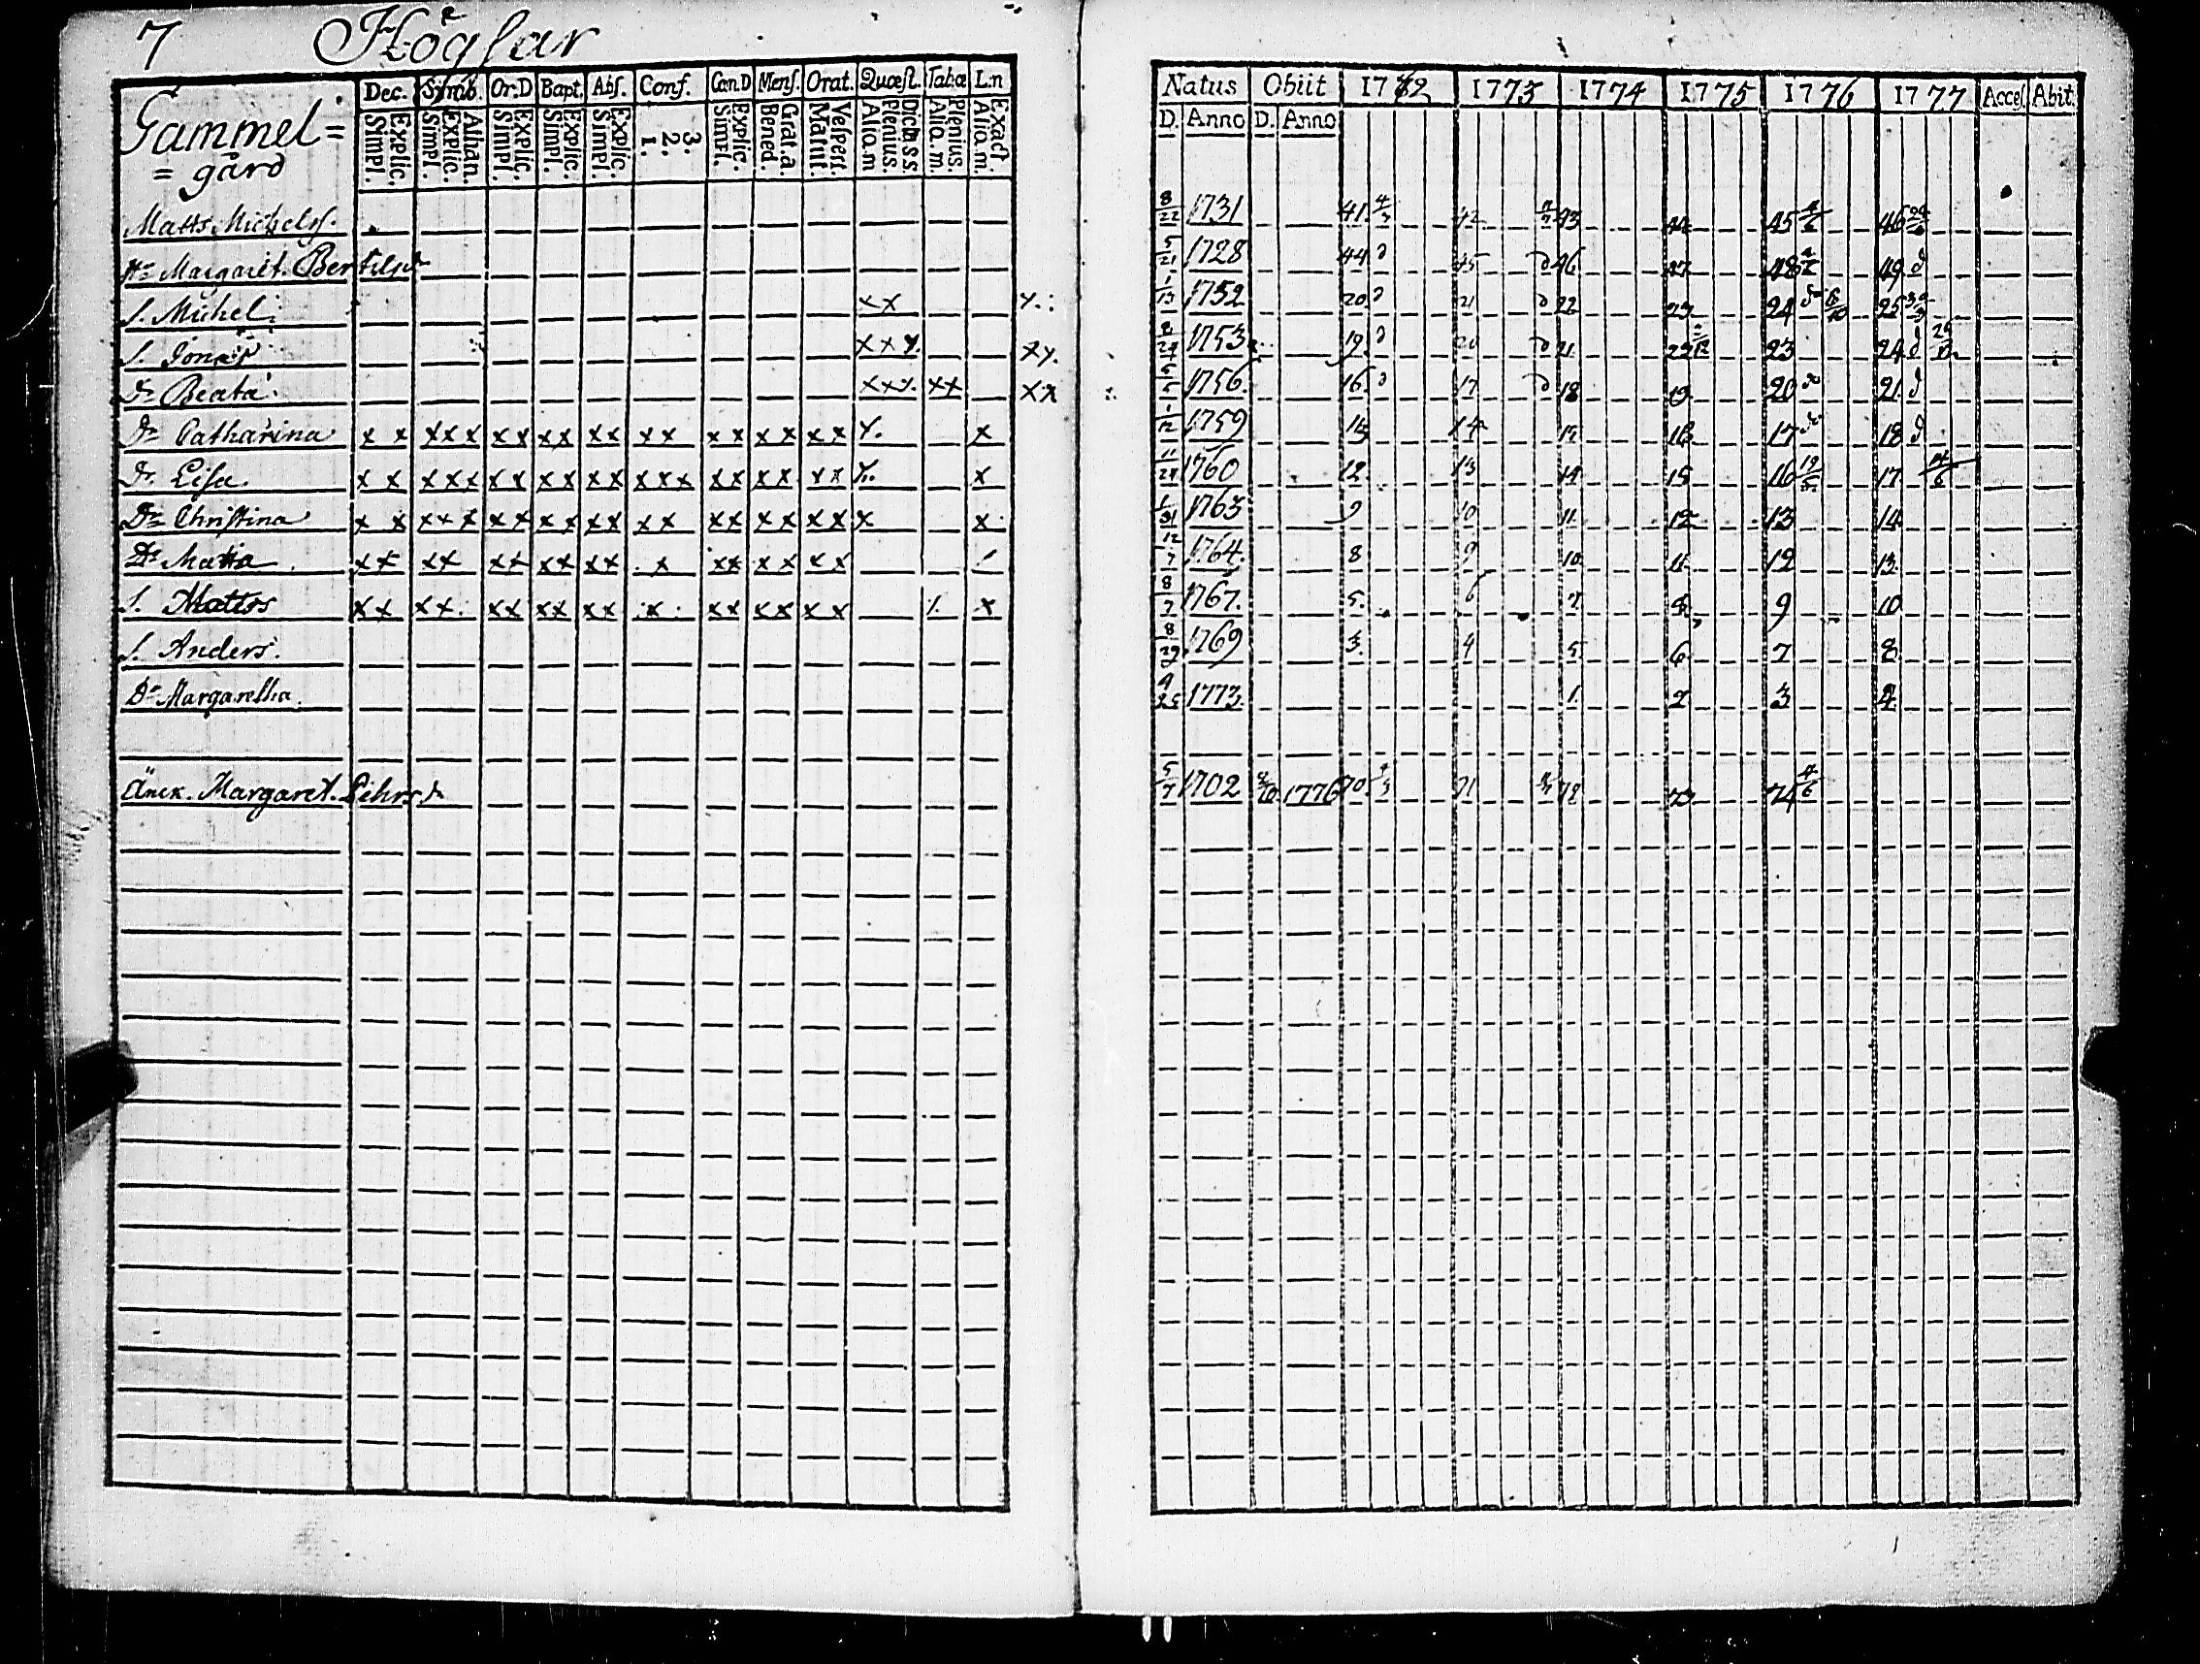 7 Högsar
Gammel=
=gård
Dec. Symb. Or:D Bapt. Abs. Conf. Cæn.D Mens. Orat. Quæst. Tabæ L.n
Explic. Simpl. Athan. Explic. Simpl. Explic. Simpl. Explic. Simpl. Explic. Simpl. 3. 2. 1. Explic. Simpl. Grat. a. Bened. Vespert. Matut. Dictis s.s. Plenius. Aliq. m. Plenius. Aliq. m. Exact Aliq. m.
Natus Obiit 1772 1773 1774 1775 1776 1777 Acces. Abit.
D. Anno D. Anno
Matts Michelss. 8/22 1731 41 4/3 42 43 44 45 46
Hu Margaret. Bertilsdr 5/21 1728 44 d 45 d 46 47 48 49 d
S. Michel x x 1/13 1752 20 d 21 d 22 23 24 25
S. Jonas x x y. xy. 1753 19 d 20 d 21 22 23 24 d
Dr Beata x x y. x x x x 1756. 16. d 17 d 18 19 20 do 21 d
Dr Catharina x x x x x x x x x x x x x x x x x x x y. x 1/12 1759 14 15 16 17 do 18 d
Dr Lisa x x x x x x x x x x x x x x x x x x x x x 11/29 1760 12 13 14 15 16 17
Dr Christina x x x x x x x x x x x x x x x x x x x x x 1/31 1763 9 10 11 12 13 14
Dr Maria x x x x x x x x x x x x x x x x x 12/7 1764. 8 9 10 11 12 13
S. Matts x x x x x x x x x x x x x x x x x x 8/7 1767. 5. 6 7 8 9 10
S. Anders 8/29 1769 3. 4 5 6 7 8
Dr Margaretha. 4/25 1773. 1. 2 3 4
Änck. Margaret. Lehrsdr 5/7 1702 1776 70 71 72 73 74 4/6